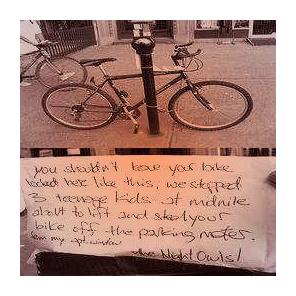 you shouldn't leave your bike
locked here like this, we stopped
3 teenage kids at midnite
about to lift and steal your
bike off the parking meter.
from my apt. window
the Night Owls!